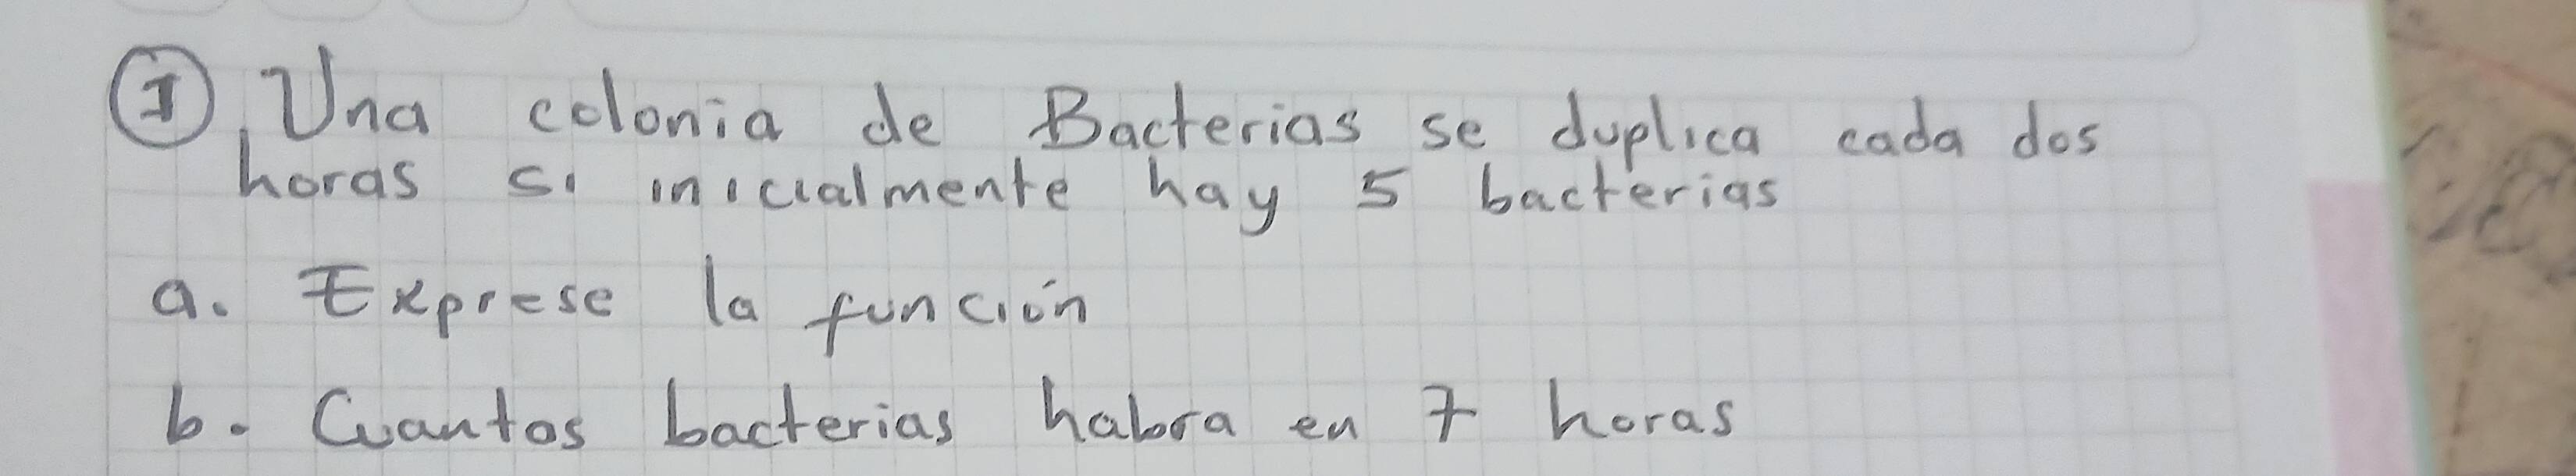 ①. Una colonia de Bacterias se duplica cada dos
horas si inicialmente hay 5 bacterias
a. Exprese la función
b. Cuantos bacterias habra en 7 horas